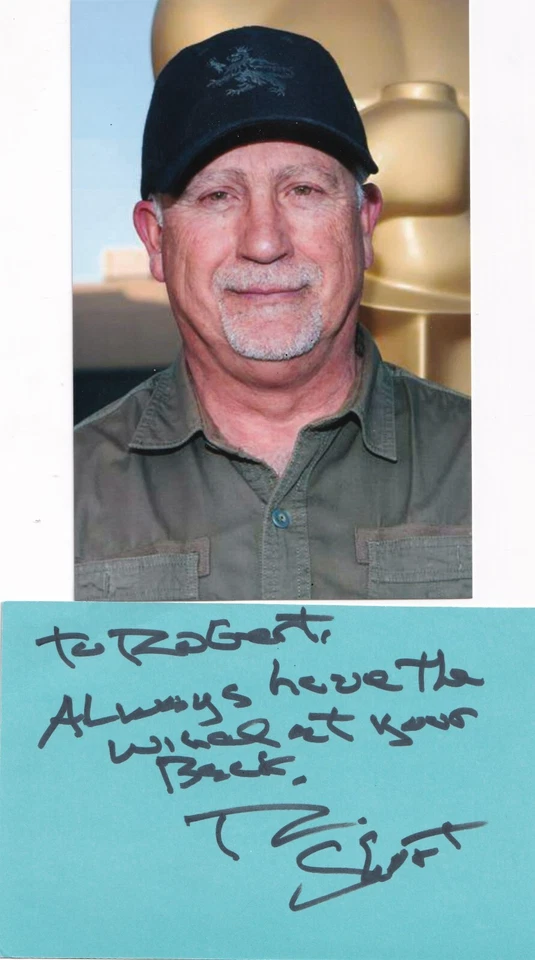 To Robert,
Always have the
wind at your
Back.